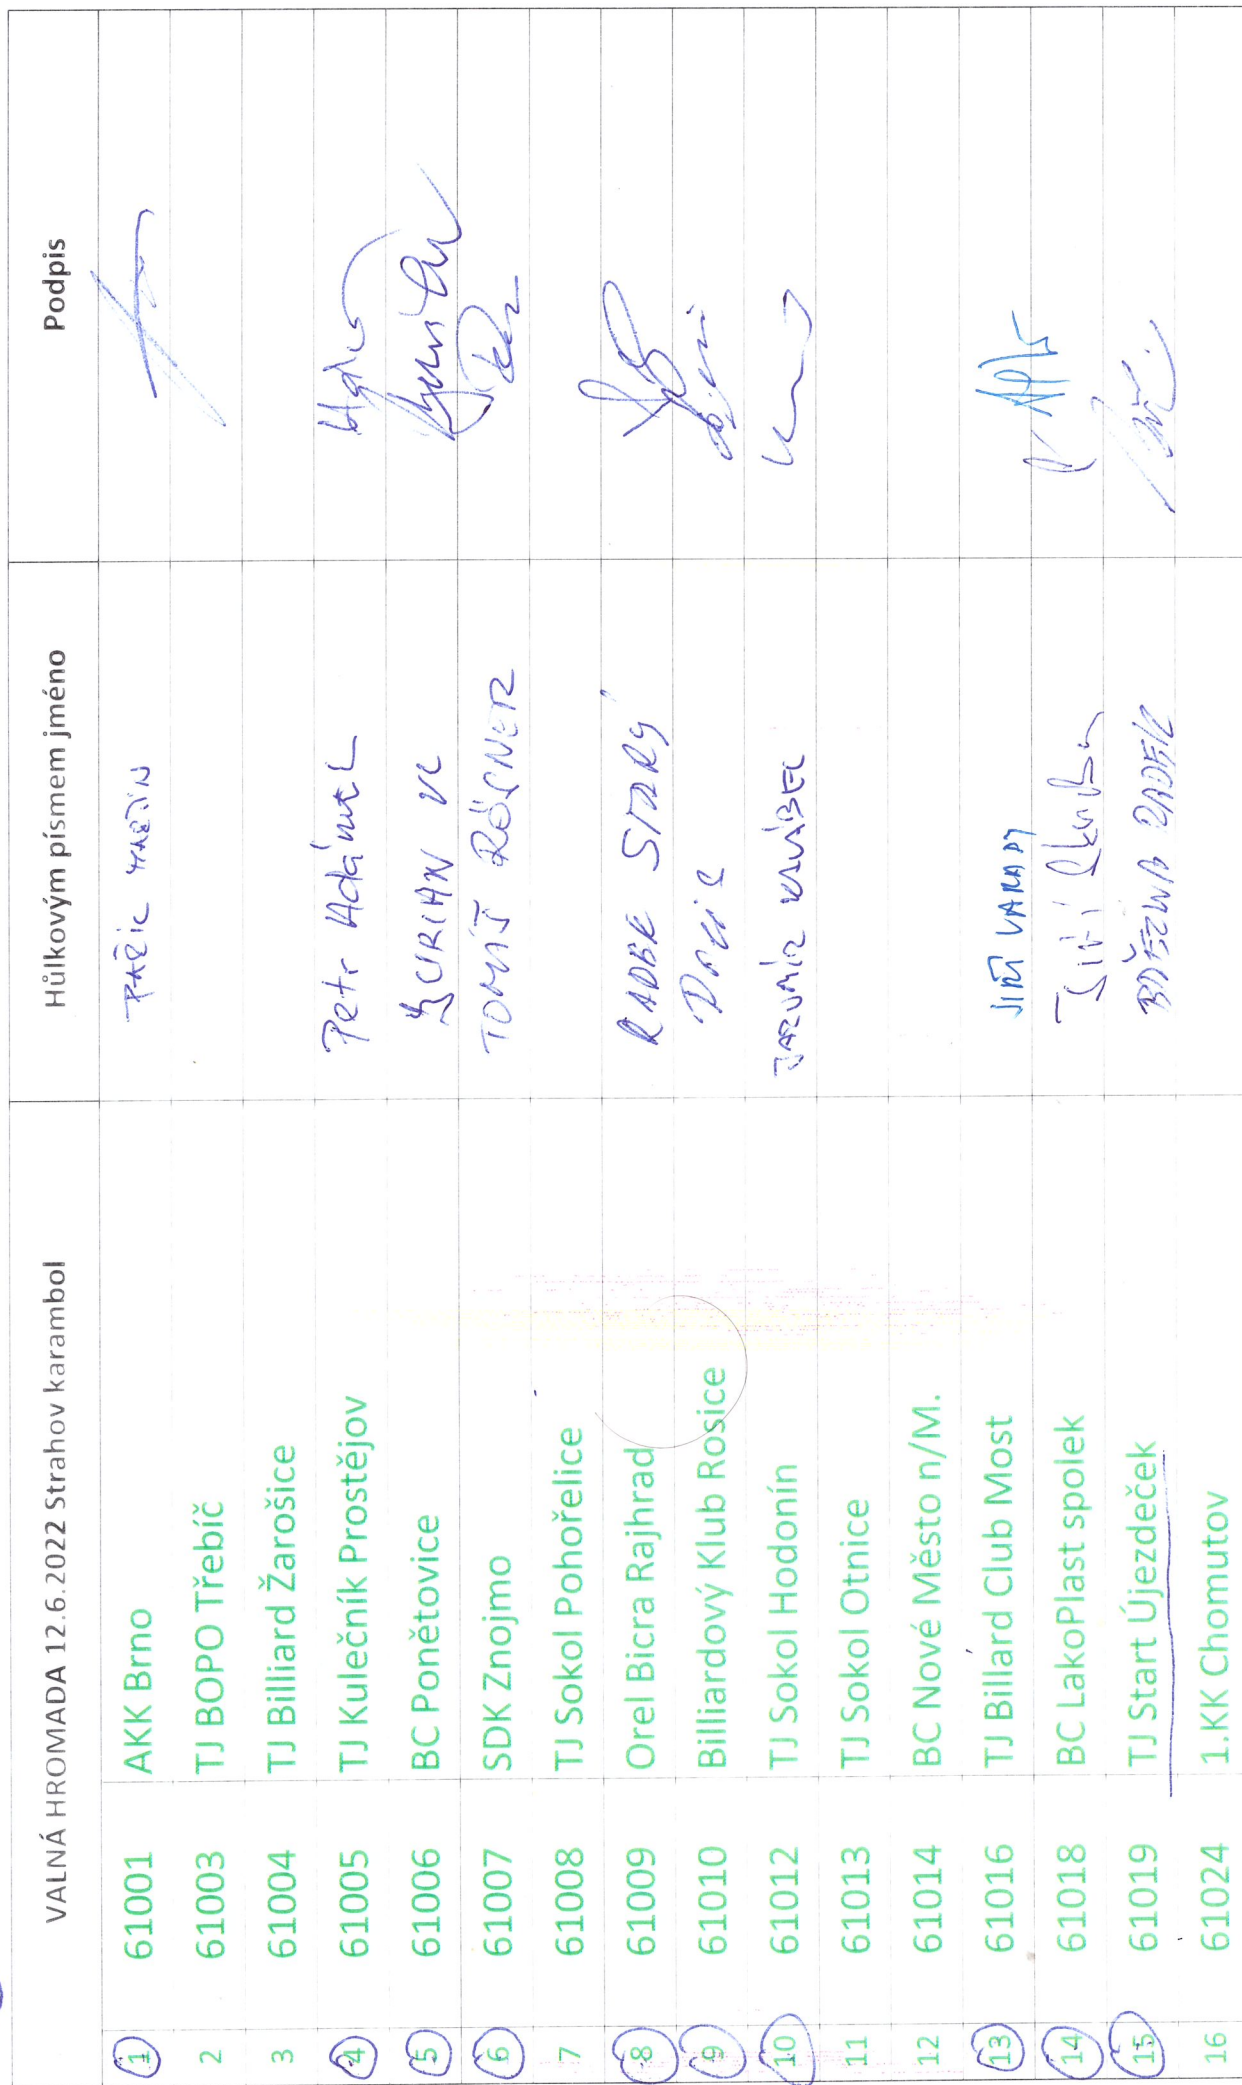 VALNÁ HROMADA 12.6.2022 Strahov karambol Hůlkovým písmem jméno Podpis
1 61001 AKK Brno
2 61003 TJ BOPO Třebíč
3 61004 TJ Billiard Žarošice
4 61005 TJ Kulečník Prostějov Petr Adámek
5 61006 BC Ponětovice
6 61007 SDK Znojmo TOMÁŠ
7 61008 TJ Sokol Pohořelice
8 61009 Orel Bicra Rajhrad RADEK STARÝ
9 61010 Billiardový Klub Rosice
10 61012 TJ Sokol Hodonín
11 61013 TJ Sokol Otnice
12 61014 BC Nové Město n/M.
13 61016 TJ Billárd Club Most JIŘÍ VARADY
14 61018 BC LakoPlast spolek Jiří
15 61019 TJ Start Újezdeček BŘEZINA RADEK
16 61024 1.KK Chomutov